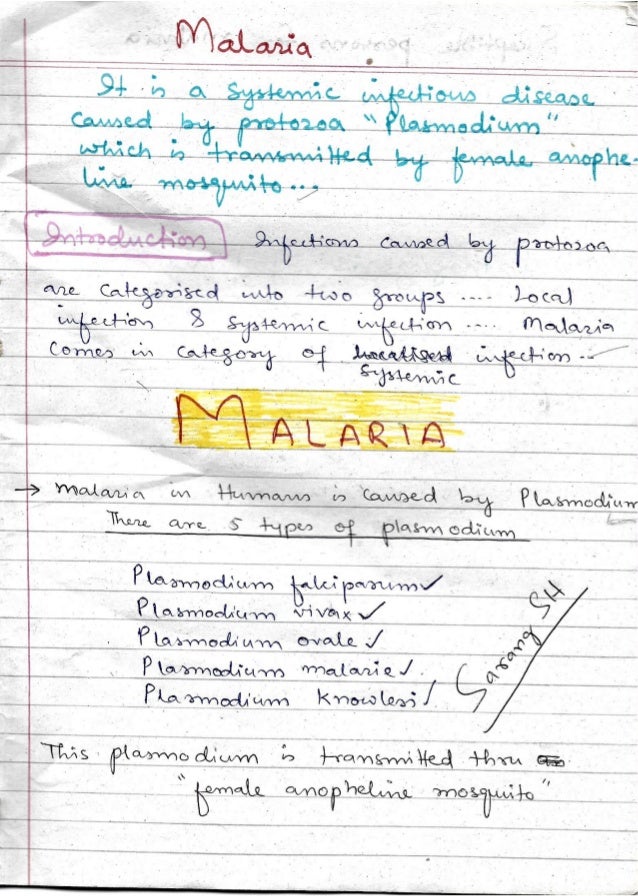 Malaria
It is a systemic infectious disease
caused by protozoa "Plasmodium"
which is transmitted by female anophe-
line mosquito...
Introduction Infections caused by protozoa
are categorised into two groups .... Local
infection & systemic infection .... Malaria
comes in category of localised infection ...
systemic
MALARIA
→ Malaria in Humans is caused by Plasmodium
There are 5 types of plasmodium
Plasmodium falciparum ✓
Plasmodium vivax ✓
Plasmodium ovale ✓
Plasmodium malarie ✓
Plasmodium knowlesi ✓
Sarang SH
This plasmodium is transmitted thru
"female anopheline mosquito"